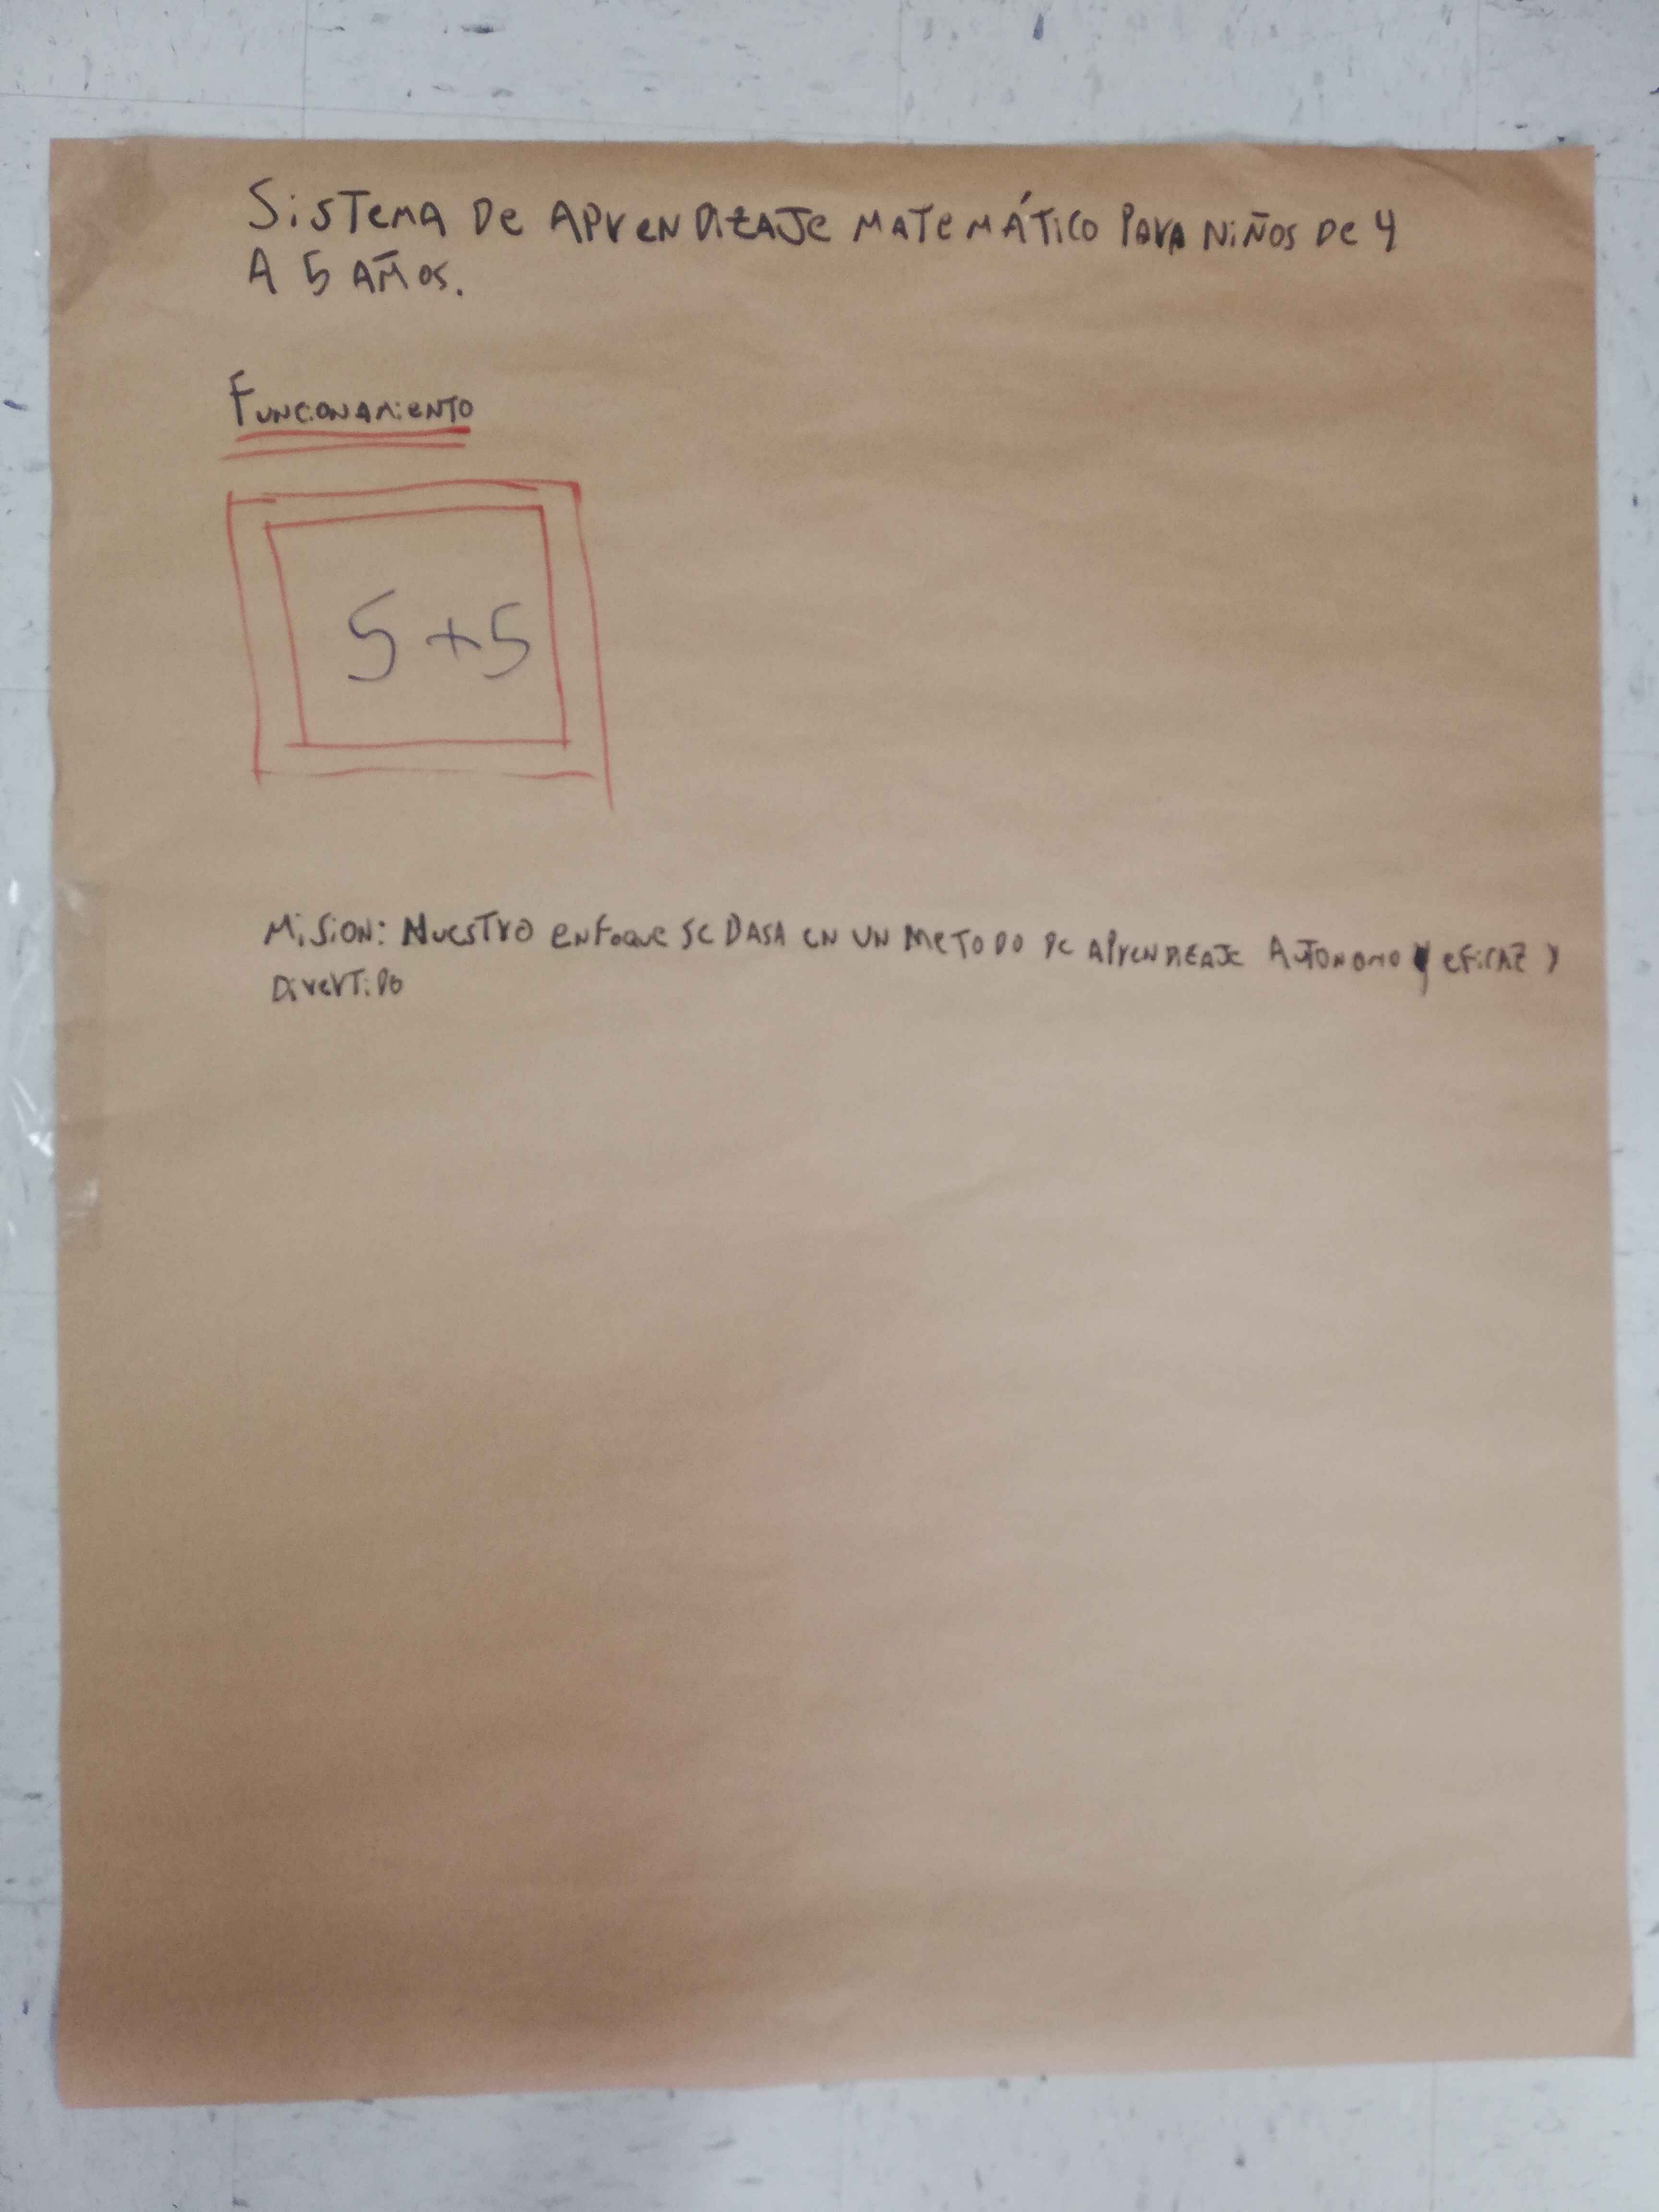 Sistema de aprendizaje matemático para niños de 4
a 5 años.
Funcionamiento
5+5
Mision: Nuestro enfoque se basa en un metodo de aprendizaje autonomo, eficaz y
divertido